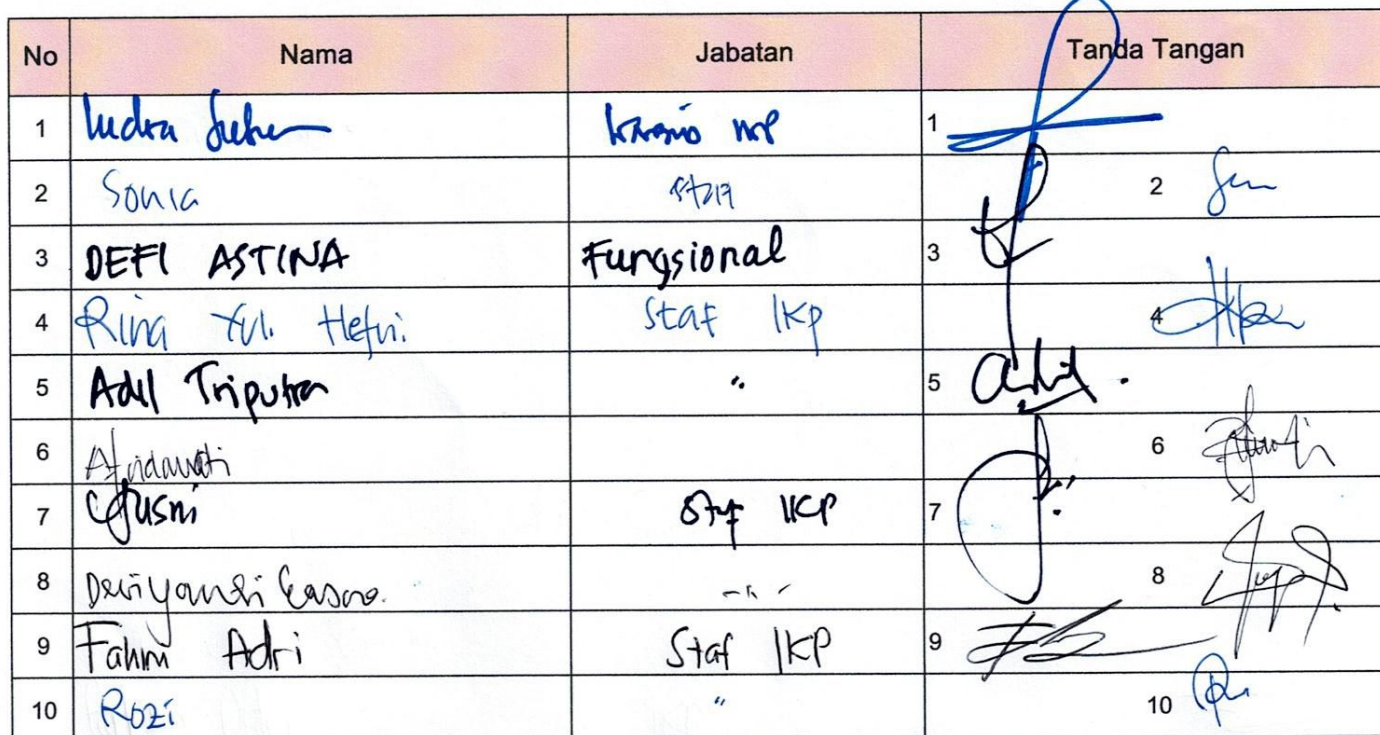 No Nama Jabatan Tanda Tangan
1 Indra 1
2 Sonia Staf 2
3 DEFI ASTINA Fungsional 3
4 Rina Yul. Hefni. Staf IKP 4
5 Adil Triputra " 5
6 Afridawati 6
7 Yusni Staf IKP 7
8 8
9 Fahm Adri Staf IKP 9
10 Rozi " 10